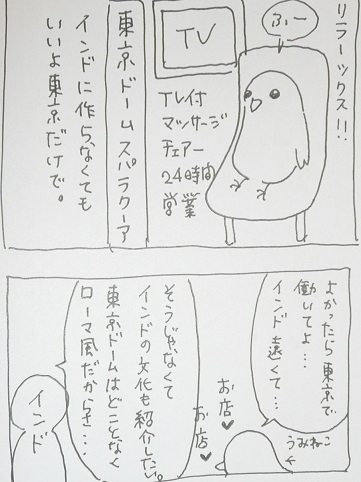 リラーックス!!
ふー
TV
TV付
マッサージ
チェアー
24時間
営業
東京ドームスパラクーア
インドに作らなくても
いいよ東京だけで。
よかったら東京で
働いてよ…
インド遠くて…
うみねこ
お店♥
お店♥
そうじゃなくて
インドの文化も紹介したい。
東京ドームはどことなく
ローマ風だからさ…
インド